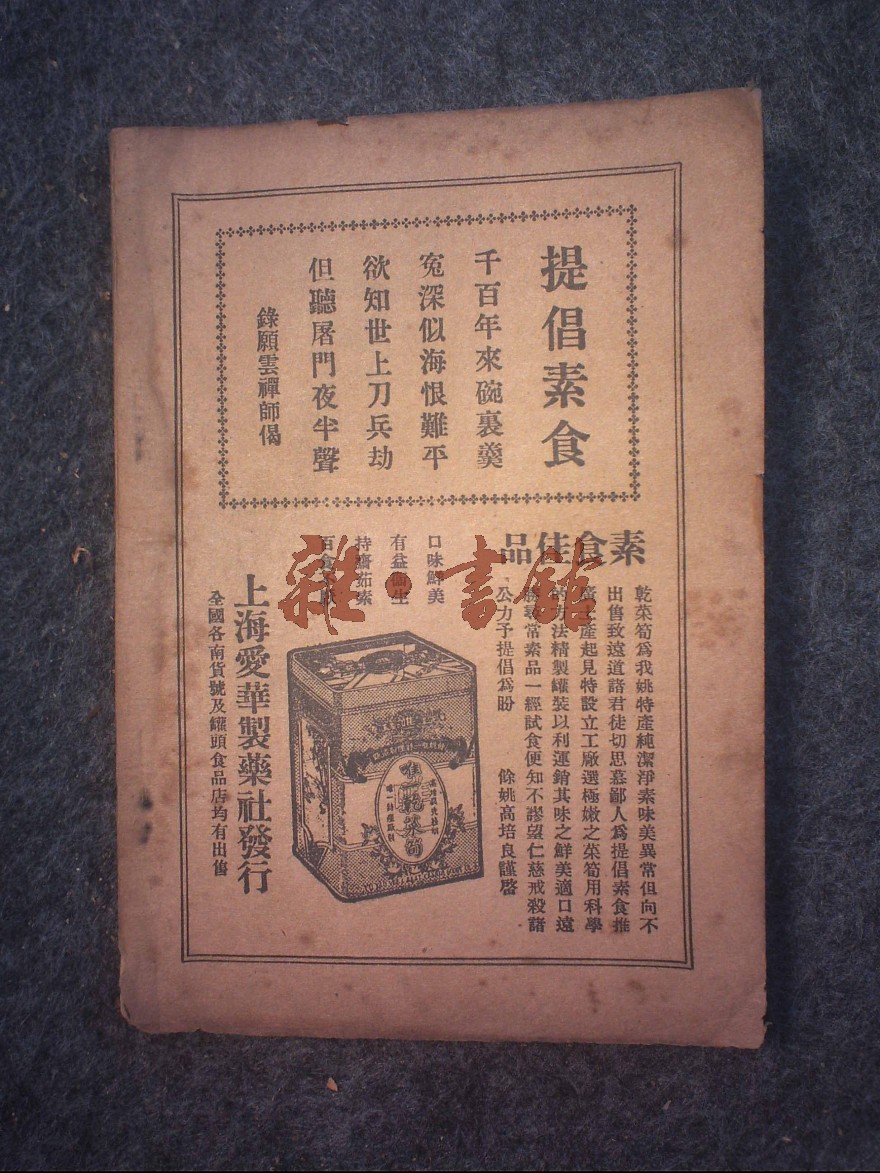 提倡素食
千百年來碗裏羹
寃深似海恨難平
欲知世上刀兵劫
但聽屠門夜半聲
錄願雲禪師偈
素食佳品
乾菜筍爲我姚特產純潔淨素味美異常但向不
出售致遠道諸君徒切思慕鄙人爲提倡素食推
廣土產起見特設立工廠選極嫩之菜筍用科學
的方法精製罐裝以利運銷其味之鮮美適口遠
勝尋常素品一經試食便知不謬望仁慈戒殺諸
公力予提倡爲盼 餘姚高培良謹啓
口味鮮美
有益衛生
持齋茹素
百食不厭
乾菜筍
上海愛華製藥社發行
全國各南貨號及罐頭食品店均有出售
雜·書館